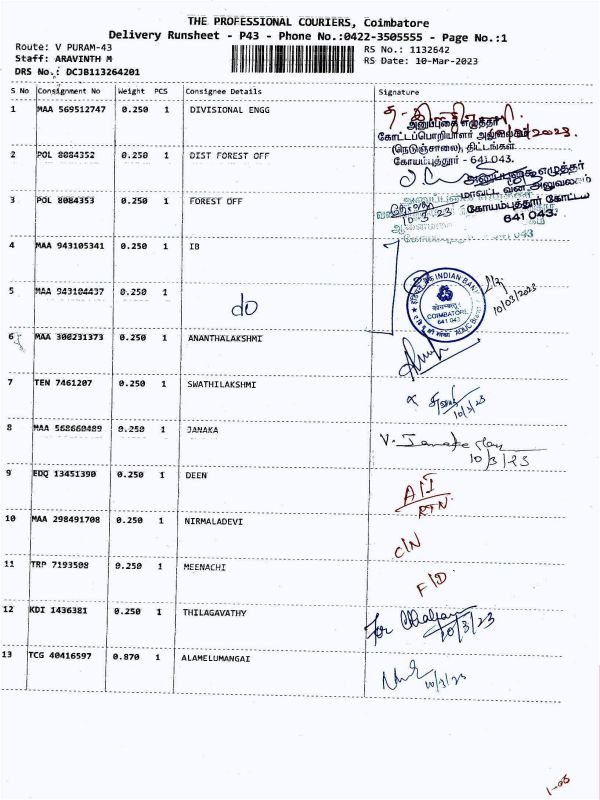 THE PROFESSIONAL COURIERS, Coimbatore
Delivery Runsheet - P43 - Phone No.:0422-3505555 - Page No.:1
Route: V PURAM-43
RS No.: 1132642
Staff: ARAVINTH M
RS Date: 10-Mar-2023
DRS No.: DCJB113264201
S No Consignment No Weight PCS Consignee Details Signature
1 MAA 569512747 0.250 1 DIVISIONAL ENGG
அனுப்புகை எழுத்தர்
கோட்டப்பொறியாளர் அலுவலகம்
(நெடுஞ்சாலை), திட்டங்கள்
கோயம்புத்தூர் - 641 043.
2 POL 8084352 0.250 1 DIST FOREST OFF
அனுப்புகை எழுத்தர்
மாவட்ட வன அலுவலகம்
கோயம்புத்தூர் கோட்டம்
641 043.
3 POL 8084353 0.250 1 FOREST OFF
10.3.23
4 MAA 943105341 0.250 1 IB
5 MAA 943104437 0.250 1 do
INDIAN BANK
COIMBATORE
641 043
10/03/2023
6 MAA 300231373 0.250 1 ANANTHALAKSHMI
7 TEN 7461207 0.250 1 SWATHILAKSHMI
10/3/23
8 MAA 568660489 0.250 1 JANAKA
10/3/23
9 EDQ 13451390 0.250 1 DEEN
A/I
RTN.
10 MAA 298491708 0.250 1 NIRMALADEVI
C/N
11 TRP 7193508 0.250 1 MEENACHI
F/D.
12 KDI 1436381 0.250 1 THILAGAVATHY
for
10/3/23
13 TCG 40416597 0.870 1 ALAMELUMANGAI
10/3/23